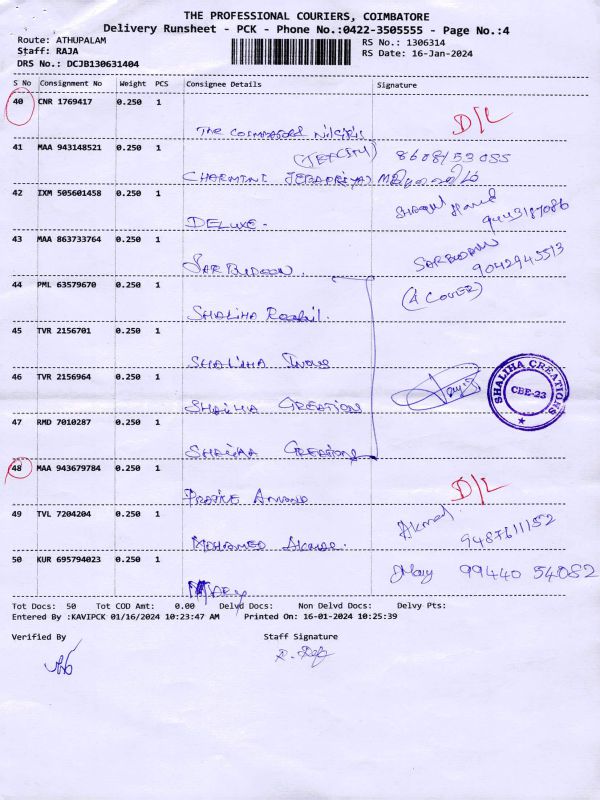 THE PROFESSIONAL COURIERS, COIMBATORE
Delivery Runsheet - PCK - Phone No.:0422-3505555 - Page No.:4
Route: ATHUPALAM
RS No.: 1306314
Staff: RAJA
RS Date: 16-Jan-2024
DRS No.: DCJB130631404
S No Consignment No Weight PCS Consignee Details Signature
40 CNR 1769417 0.250 1 D/L
THE COIMBATORE NILGIRIS
41 MAA 943148521 0.250 1 8608153055
CHARMINI
42 IXM 505601458 0.250 1
DELUXE. 9443187086
43 MAA 863733764 0.250 1
9042945513
44 PML 63579670 0.250 1 (4 COVER)
SHALIHA
45 TVR 2156701 0.250 1
SHALIHA
46 TVR 2156964 0.250 1
SHALIHA CREATION
SHALIHA CREATIONS
CBE-23
47 RMD 7010287 0.250 1
SHALIHA CREATIONS
48 MAA 943679784 0.250 1 D/L
ANAND
49 TVL 7204204 0.250 1 9487611152
MOHAMED
50 KUR 695794023 0.250 1 Mary 99440 54082
MARY
Tot Docs: 50 Tot COD Amt: 0.00 Delvd Docs: Non Delvd Docs: Delvy Pts:
Entered By :KAVIPCK 01/16/2024 10:23:47 AM Printed On: 16-01-2024 10:25:39
Verified By Staff Signature